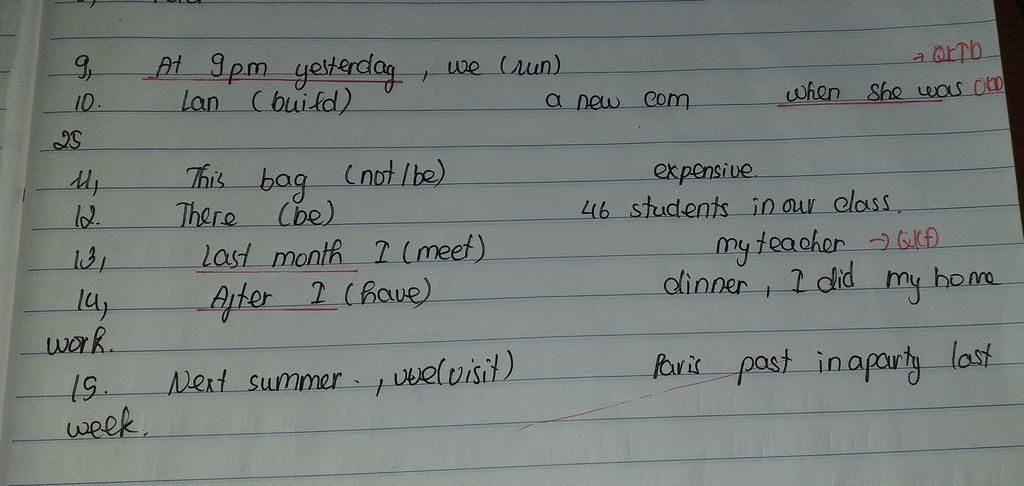 9, At 9pm yesterday, we (run) → QKTD
10. Lan (build) a new com when she was
25
11, This bag (not/be) expensive.
12. There (be) 46 students in our class.
13, Last month I (meet) my teacher → QKĐ
14, After I (have) dinner, I did my home
work.
15. Next summer., we (visit) Paris past in a party last
week.